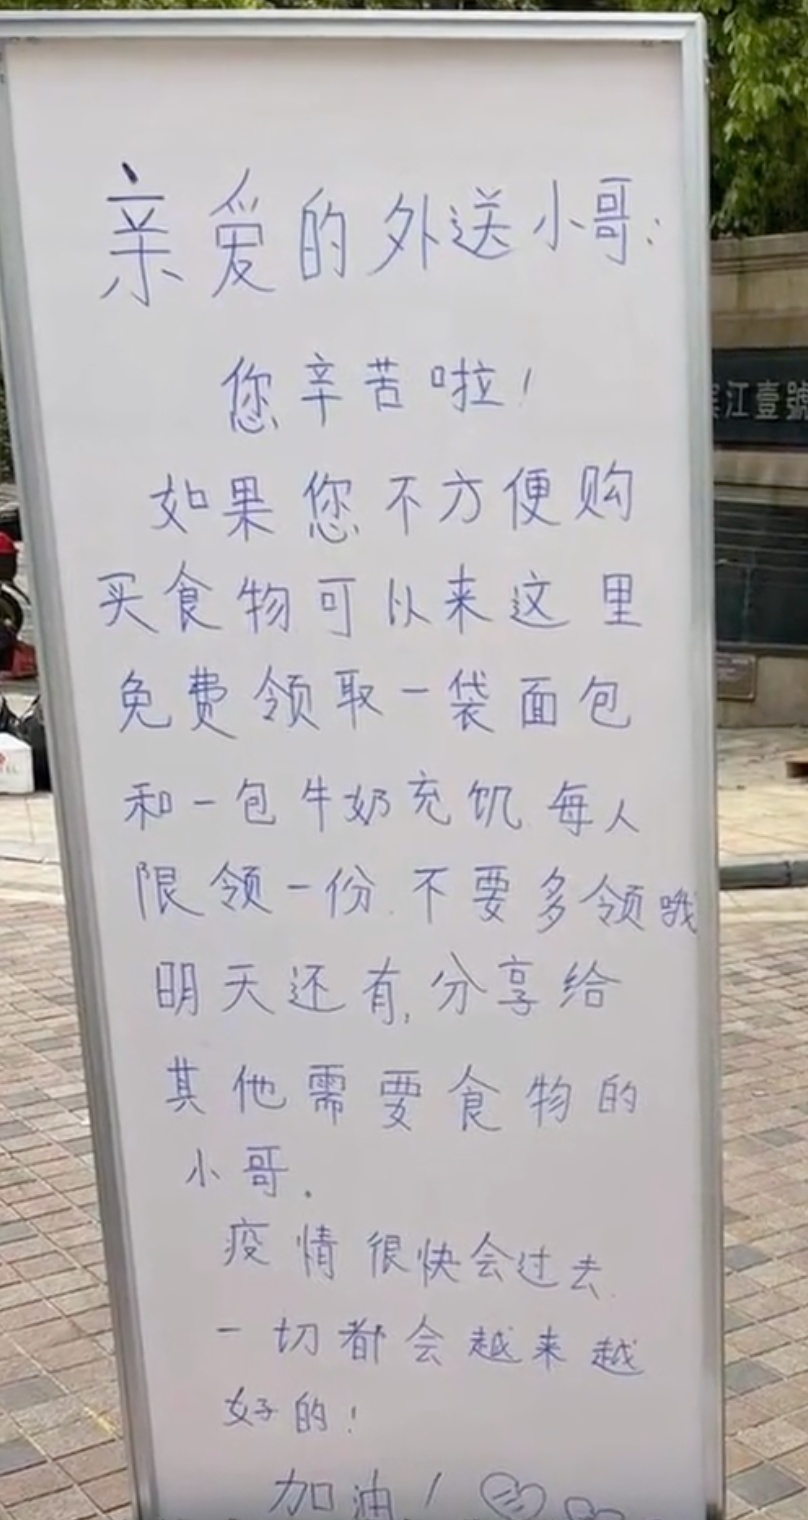 亲爱的外送小哥:
您辛苦啦!
如果您不方便购
买食物可以来这里
免费领取一袋面包
和一包牛奶充饥.每人
限领一份.不要多领哦
明天还有,分享给
其他需要食物的
小哥.
疫情很快会过去
一切都会越来越
好的!
加油!
滨江壹號